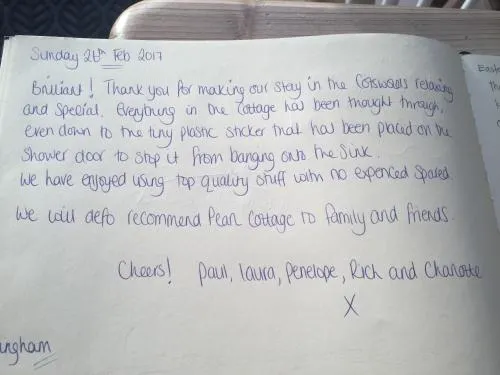 Sunday 26th Feb 2017
Brilliant! Thank you for making our stay in the Cotswolds relaxing
and special. Everything in the cottage has been thought through,
even down to the tiny plastic sticker that has been placed on the
shower door to stop it from banging onto the sink.
We have enjoyed using top quality stuff with no expenced spared.
We will defo recommend Pear Cottage to family and friends.
Cheers! Paul, Laura, Penelope, Rich and Charlotte
X
ingham
East
th